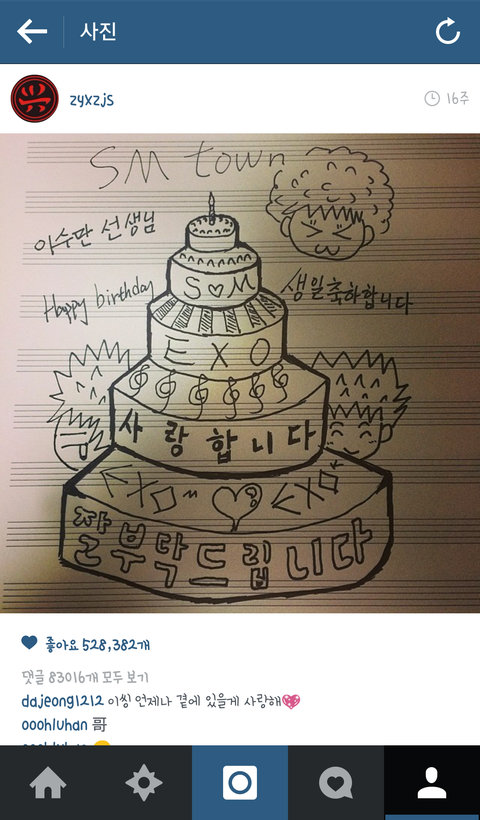 사진
zyxzjs
16주
SM town
이수만 선생님
Happy birthday
생일축하합니다
S♡M
EXO
사랑합니다
EXO ~ ♡ EXO
잘부탁드립니다
좋아요 528,382개
댓글 83016개 모두 보기
dajeong1212 이씽 언제나 곁에 있을게 사랑해💖
ooohluhan 哥